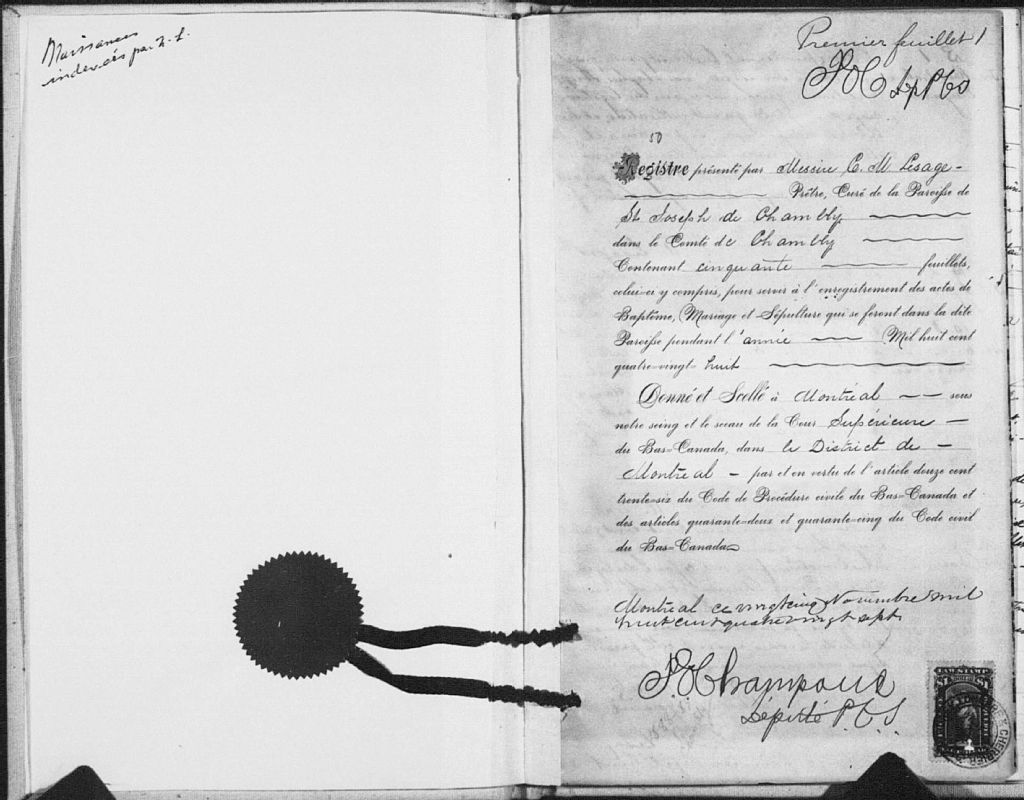 Naissances
indexées par
Premier feuillet 1
50
Registre présenté par Messire C. M. Lesage -
Prêtre, Curé de la Paroisse de
St Joseph de Chambly
dans le Comté de Chambly
Contenant cinquante feuillets,
celui-ci y compris, pour servir à l'enregistrement des actes de
Baptême, Mariage et Sépulture qui se feront dans la dite
Paroisse pendant l'année Mil huit cent
quatre-vingt-huit
Donné et Scellé à Montréal sous
notre seing et le sceau de la Cour Supérieure
du Bas-Canada, dans le District de
Montréal - par et en vertu de l'article douze cent
trente-six du Code de Procédure civile du Bas-Canada et
des articles quarante-deux et quarante-cinq du Code civil
du Bas-Canada
Montréal ce vingt cinq Novembre mil
huit cent quatre vingt sept.
Député P. C. S.